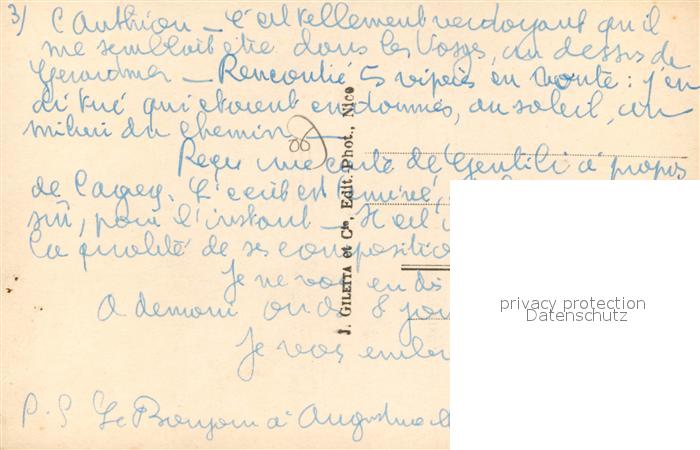 3/ l'Authion – C'est tellement verdoyant qu'il
me semblait être dans les Vosges, au dessus de
Gérardmer – Rencontré 5 vipères en route : j'en
ai tué qui étaient endormies, au soleil, au
milieu du chemin –
Reçu une carte de Gentili à propos
de
sûr, pour l'instant – Il est
la qualité de ses compositio
Je ne vous en dis
A demain ou ds 8 jou
Je vous embr
P.S Le Bonjour à
J. GILETTA et Cie, Edit. Phot., Nice
privacy protection
Datenschutz